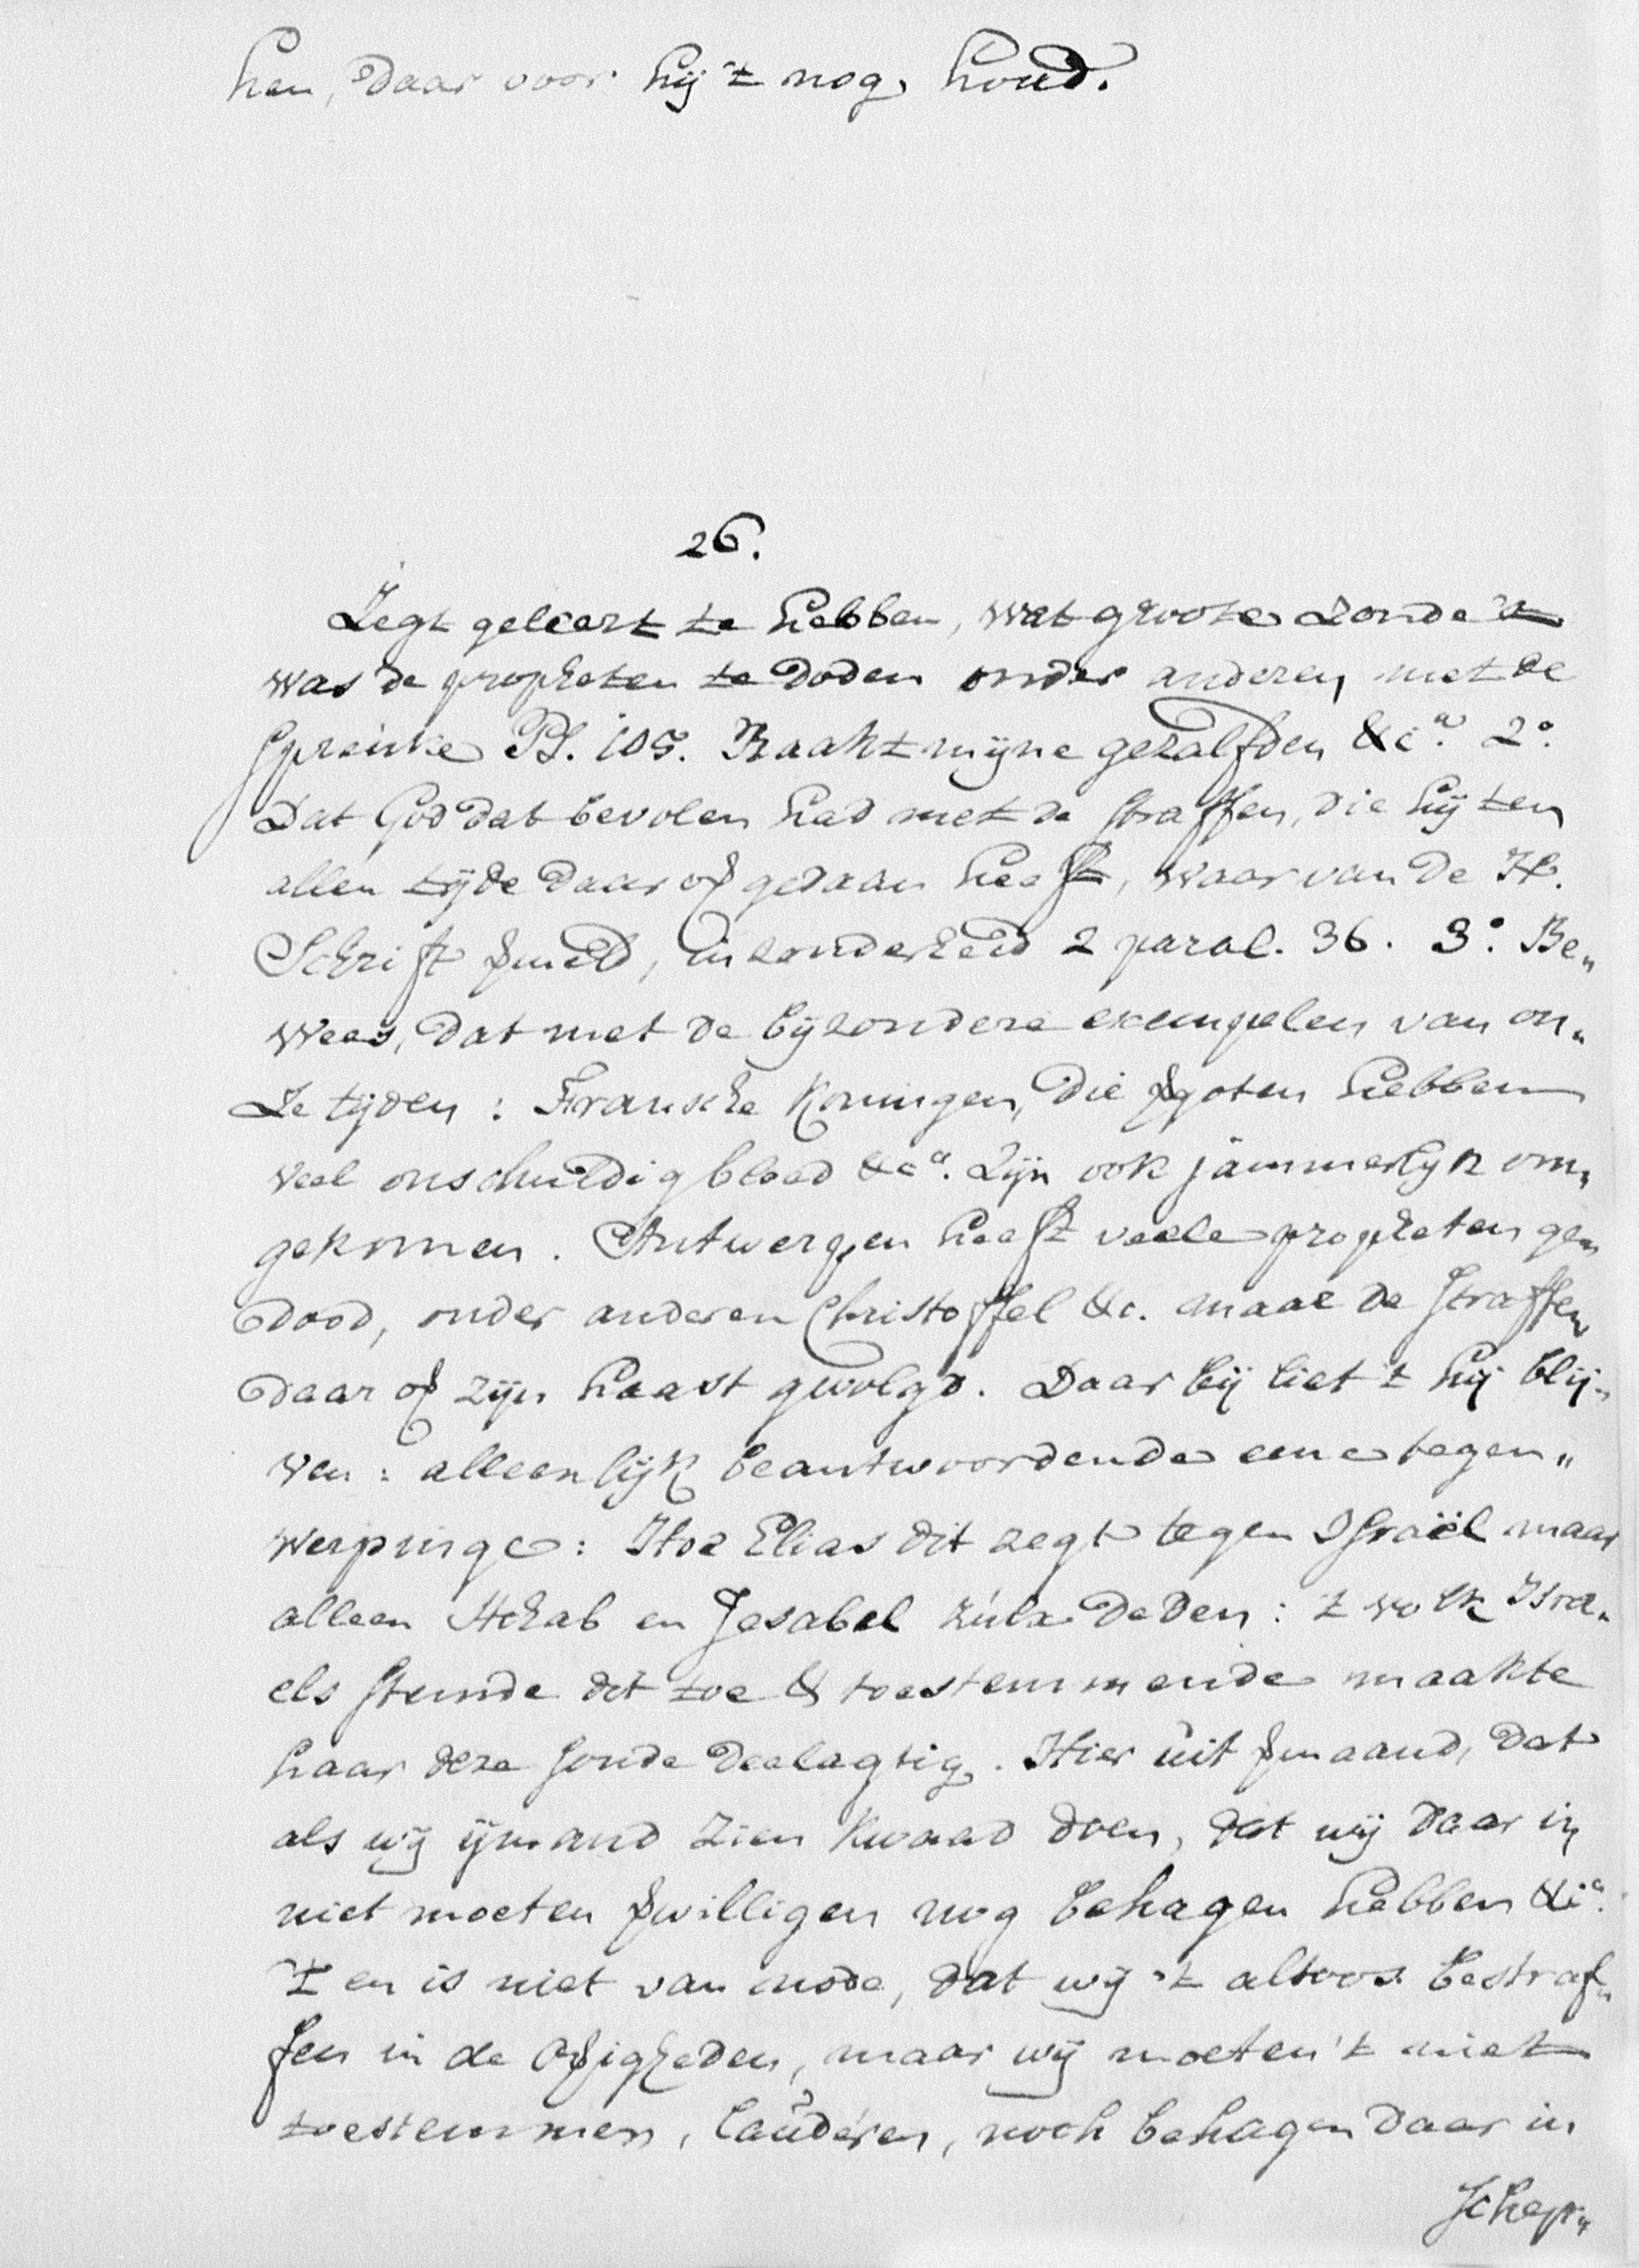 hen, daar voor hij 't nog houd.
26.
Zegt geleert te hebben, wat groote zonde 't
was de propheten te doden onder anderen met de
spreuke Ps. 105. Raakt mijne gezalfden &cª. 2°.
Dat God dat bevolen had met de straffen, die hij ten
allen tijde daar of gedaan heeft, waar van de H.
Schrift vmeld, inzonderheid 2 paral. 36. 3°. Be„
wees, dat met de bijzondere exempelen van on„
ze tijden: Fransche Koningen, die vgoten hebben
veel onschuldig bloed &cª. Zijn ook jammerlijk om„
gekomen. Antwerpen heeft veele propheten ge„
dood, onder anderen Christoffel &c. maar de straffen
daar of zijn haast gevolgd. Daar bij liet 't hij blij„
ven: alleenlijk beantwoordende eene tegen„
werpinge: Hoe Elias dit zegt tegen Israël maar
alleen Achab en Jesabel zulx deden: 't volk Isra„
els stemde dit toe & toestemmende maakte
haar deze sonde deelagtig. Hier uit vmaand, dat
als wij ijmand zien kwaad doen, dat wij daar in
niet moeten vwilligen nog behagen hebben &cª.
't en is niet van node, dat wij 't altoos bestraf„
fen in de Ovigheden, maar wij moeten 't niet
toestemmen, lauderen, noch behagen daar in
schep„